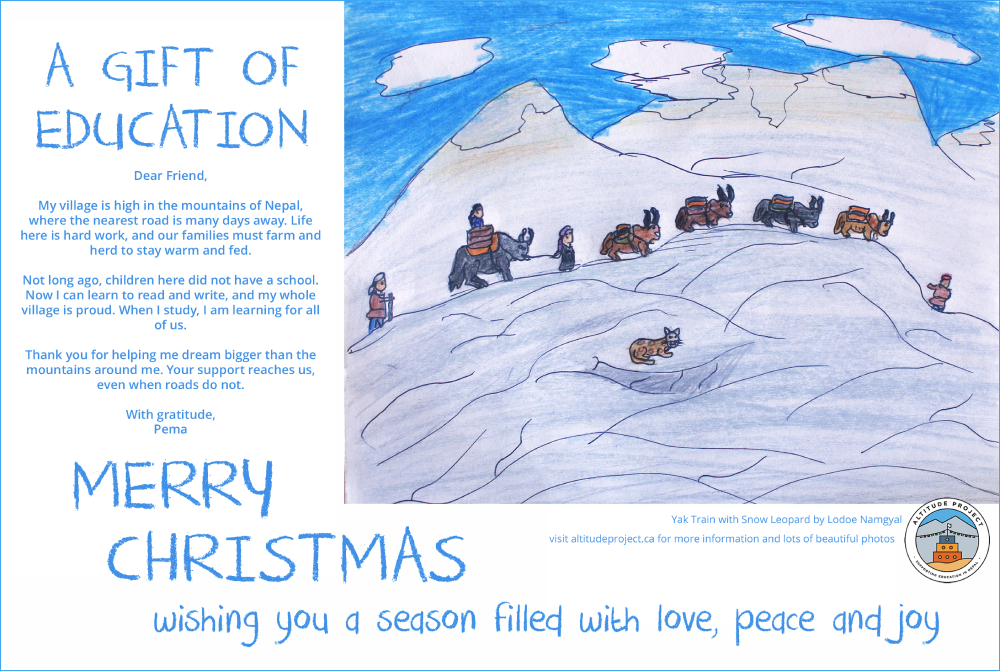 A GIFT OF
EDUCATION
Dear Friend,
My village is high in the mountains of Nepal,
where the nearest road is many days away. Life
here is hard work, and our families must farm and
herd to stay warm and fed.
Not long ago, children here did not have a school.
Now I can learn to read and write, and my whole
village is proud. When I study, I am learning for all
of us.
Thank you for helping me dream bigger than the
mountains around me. Your support reaches us,
even when roads do not.
With gratitude,
Pema
MERRY
CHRISTMAS
wishing you a season filled with love, peace and joy
Yak Train with Snow Leopard by Lodoe Namgyal
visit altitudeproject.ca for more information and lots of beautiful photos
ALTITUDE PROJECT
SUPPORTING EDUCATION IN NEPAL